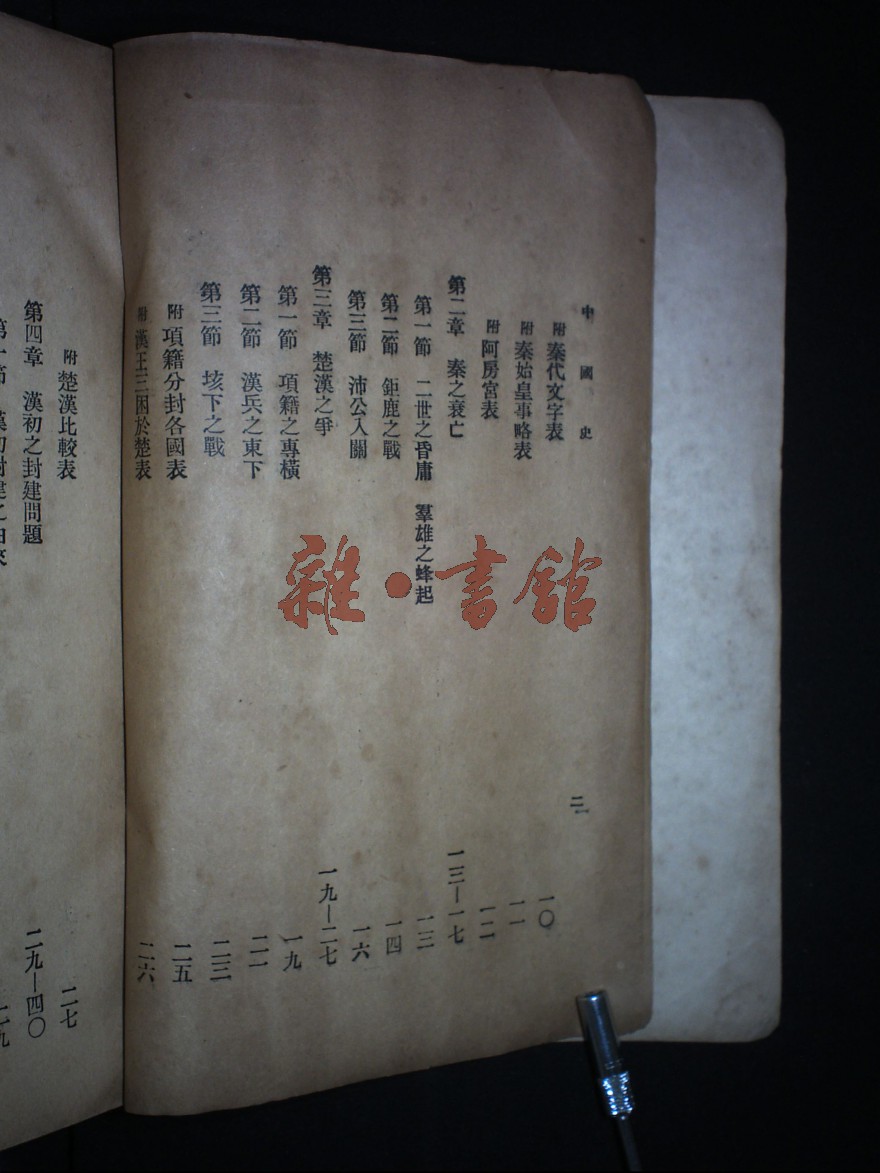 中國史
二
附 秦代文字表 一〇
附 秦始皇事略表 一一
附 阿房宮表 一二
第二章 秦之衰亡 一三—一七
第一節 二世之昏庸 羣雄之蜂起 一三
第二節 鉅鹿之戰 一四
第三節 沛公入關 一六
第三章 楚漢之爭 一九—二七
第一節 項籍之專橫 一九
第二節 漢兵之東下 二一
第三節 垓下之戰 二三
附 項籍分封各國表 二五
附 漢王三困於楚表 二六
附 楚漢比較表 二七
第四章 漢初之封建問題 二九—四〇
第一節 漢初封建之由來 二九
雜·書館